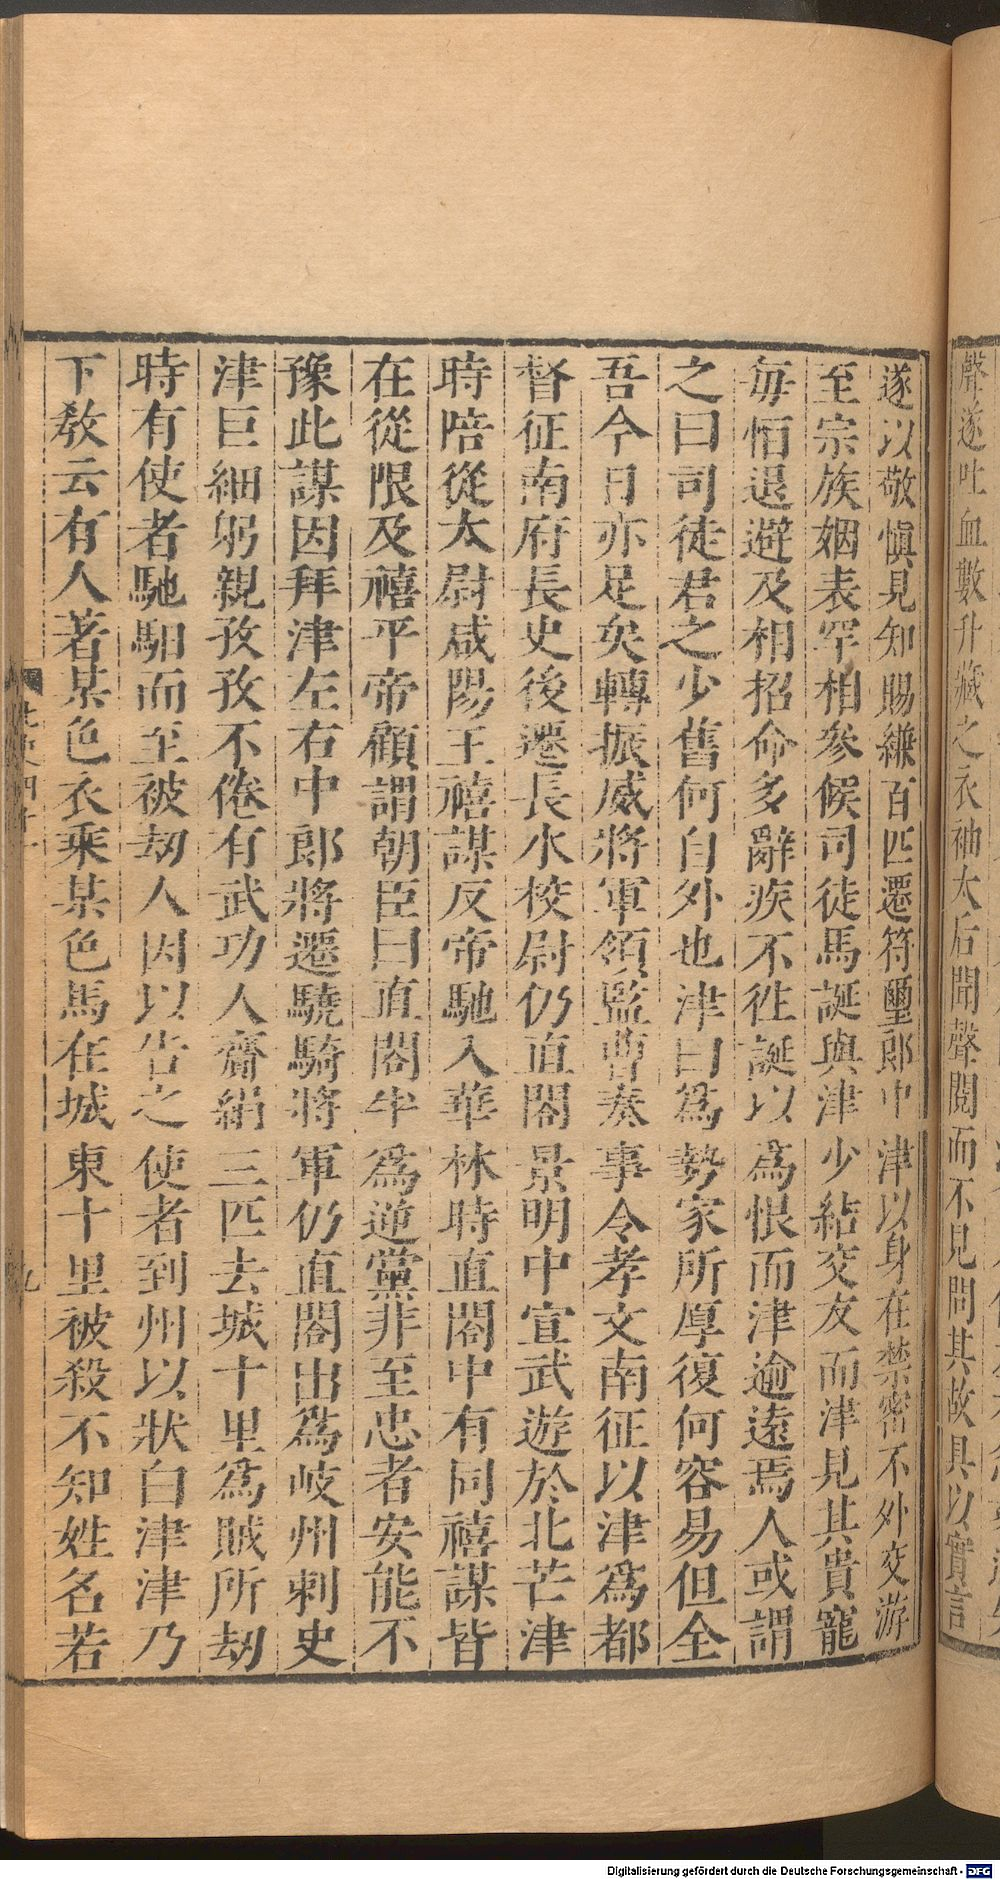 聲遂吐血數升藏之衣袖太后聞聲閱而不見問其故具以實言
遂以敬愼見知賜縑百匹遷符璽郎中津以身在禁密不外交游
至宗族姻表罕相參候司徒馬誕與津少結交友而津見其貴寵
每恒退避及相招命多辭疾不往誕以爲恨而津逾遠焉人或謂
之曰司徒君之少舊何自外也津曰爲勢家所厚復何容易但全
吾今日亦足矣轉振威將軍領監曹奏事令孝文南征以津爲都
督征南府長史後遷長水校尉仍直閤景明中宣武遊於北芒津
時陪從太尉咸陽王禧謀反帝馳入華林時直閤中有同禧謀皆
在從限及禧平帝顧謂朝臣曰直閤半爲逆黨非至忠者安能不
豫此謀因拜津左右中郎將遷驍騎將軍仍直閤出爲岐州刺史
津巨細躬親孜孜不倦有武功人齎絹三匹去城十里爲賊所劫
時有使者馳馹而至被劫人因以告之使者到州以狀白津津乃
下敎云有人著某色衣乘某色馬在城東十里被殺不知姓名若
九
Digitalisierung gefördert durch die Deutsche Forschungsgemeinschaft - DFG